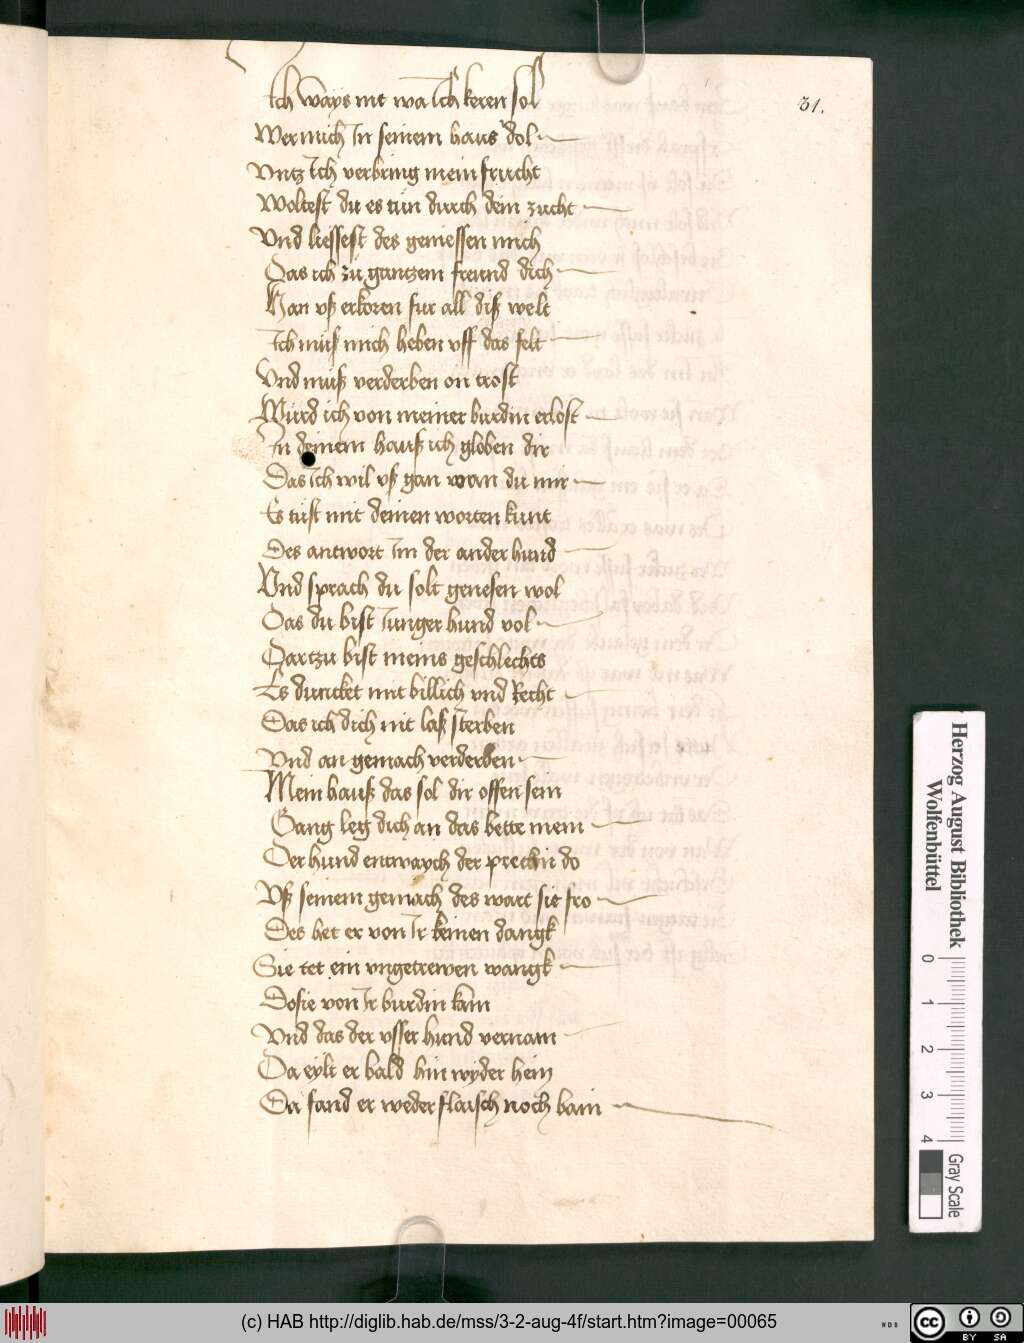 31.
Ich ways nit wa Ich keren sol
Wer mich In seinem haus dol
Vntz Ich verbring mein frucht
Woltest du es tun durch dein zucht
Vnd liessest des geniessen mich
Das ich zu gantzem freund dich
Han vß erkoren fur all diß welt
Ich muß mich heben vff das felt
Vnd muß verderben on trost
Wurd ich von meiner burdin erlost
In deinem hauß ich globen dir
Das Ich wil vß gan wan du mir
Es tust mit deinen worten kunt
Des antwort Im der ander hund
Vnd sprach du solt genesen wol
Das du bist Iunger hund vol
Dartzu bist meins geschlechts
Es duncket mit billich vnd Recht
Das ich dich nit laß sterben
Vnd an gemach verderben
Mein hauß das sol dir offen sein
Gang leg dich an das bette mein
Der hund entwaych der prechin do
Vß seinem gemach des wart sie fro
Des het er von Ir keinen dangk
Sie tet ein vngetrewen wangk
Do sie von Ir burdin kam
Vnd das der vsser hund vernam
Da eylt er bald hin wyder hein
Da fand er weder flaisch noch bain
Herzog August Bibliothek
Wolfenbüttel
0 1 2 3 4
Gray Scale
(c) HAB http://diglib.hab.de/mss/3-2-aug-4f/start.htm?image=00065
cc BY SA